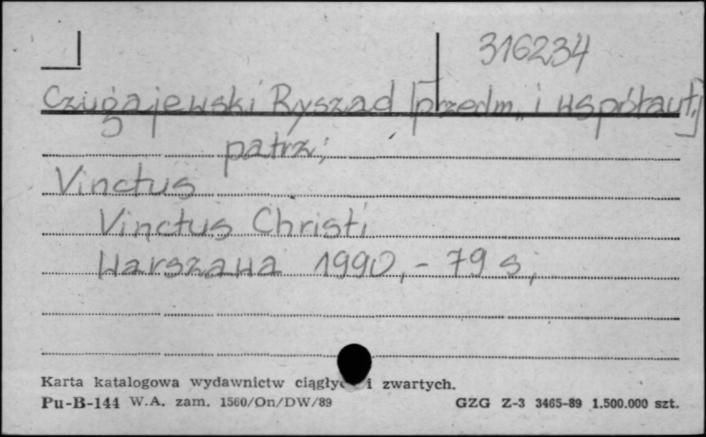 316234
Czugajewski Ryszad [przedm., i współaut.]
patrz;
Vinctus
Vinctus Christi
Warszawa 1990,- 79 s,
Karta katalogowa wydawnictw ciągłyc i zwartych.
Pu-B-144 W.A. zam. 1560/On/DW/89 GZG Z-3 3465-89 1.500.000 szt.